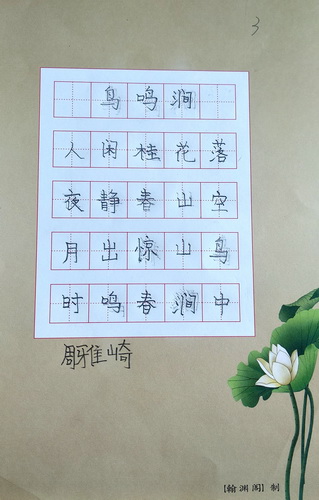 3
鸟鸣涧
人闲桂花落
夜静春山空
月出惊山鸟
时鸣春涧中
周雅崎
[翰渊阁] 制